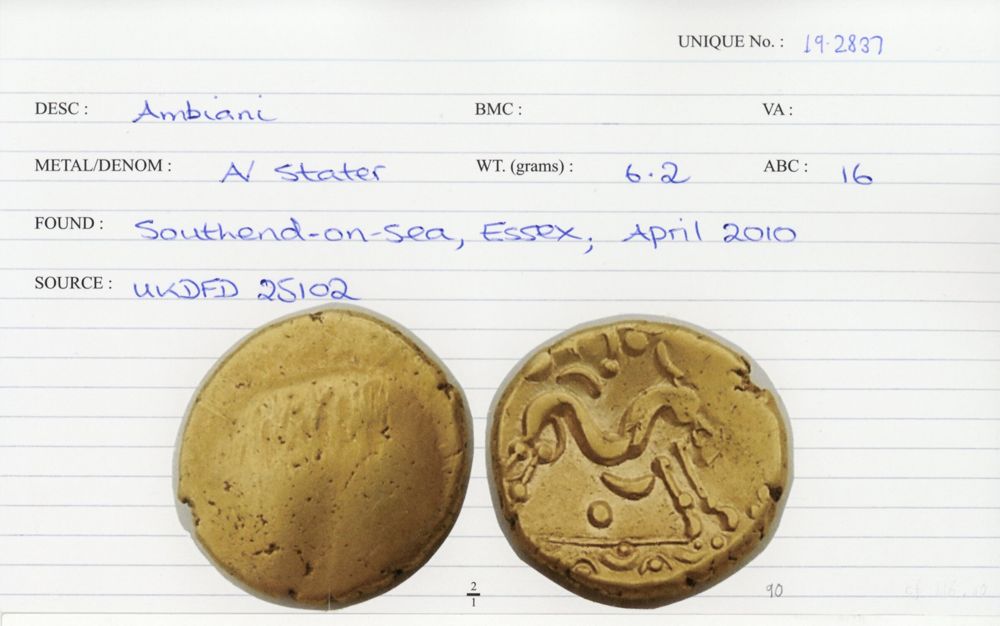 UNIQUE No. : 19.2837
DESC : Ambiani BMC : VA :
METAL/DENOM : A/ Stater WT. (grams) : 6.2 ABC : 16
FOUND : Southend-on-Sea, Essex, April 2010
SOURCE : UKDFD 25102
2
1
90